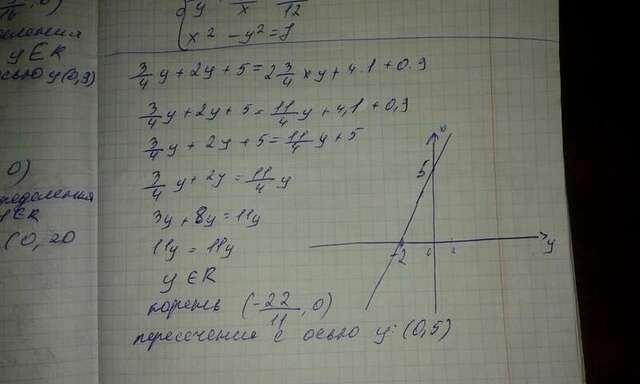 0)
деления
y ∈ R
осью y (0,9)
0)
ределения
y ∈ R
(0, 20
x² - y² = 9
3/4 y + 2y + 5 = 2 3/4 xy + 4.1 + 0.9
3/4 y + 2y + 5 = 11/4 y + 4,1 + 0,9
3/4 y + 2y + 5 = 11/4 y + 5
3/4 y + 2y = 11/4 y
3y + 8y = 11y
11y = 11y
y ∈ R
корень (-22/11, 0)
пересечения с осью y: (0,5)
5
-2
0
y